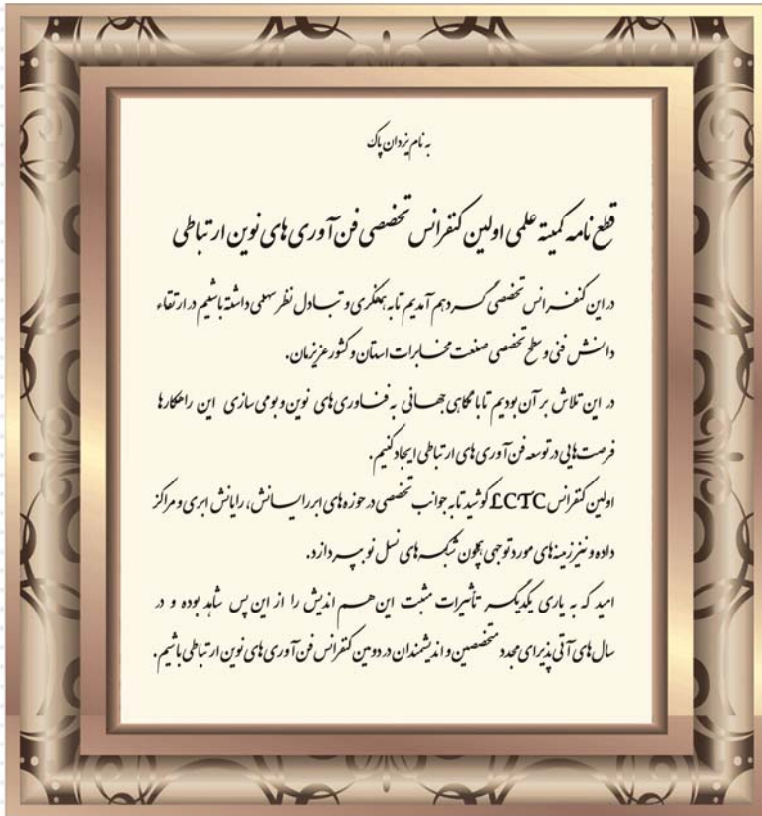 به نام یزدان پاک
قطع نامه کمیته علمی اولین کنفرانس تخصصی فن آوری های نوین ارتباطی
در این کنفرانس تخصصی گرد هم آمدیم تا به همفکری و تبادل نظر سهمی داشته باشیم در ارتقاء
دانش فنی و سطح تخصصی صنعت مخابرات استان و کشور عزیزمان.
در این تلاش بر آن بودیم تا با نگاهی جهانی به فناوری های نوین و بومی سازی این راهکارها
فرصت هایی در توسعه فن آوری های ارتباطی ایجاد کنیم.
اولین کنفرانس LCTC کوشید تا به جوانب تخصصی در حوزه های ابررایانش، رایانش ابری و مراکز
داده و نیز زمینه های مورد توجهی همچون شبکه های نسل نو بپردازد.
امید که به یاری یکدیگر تأثیرات مثبت این هم اندیش را از این پس شاهد بوده و در
سال های آتی پذیرای مجدد متخصصین و اندیشمندان در دومین کنفرانس فن آوری های نوین ارتباطی باشیم.